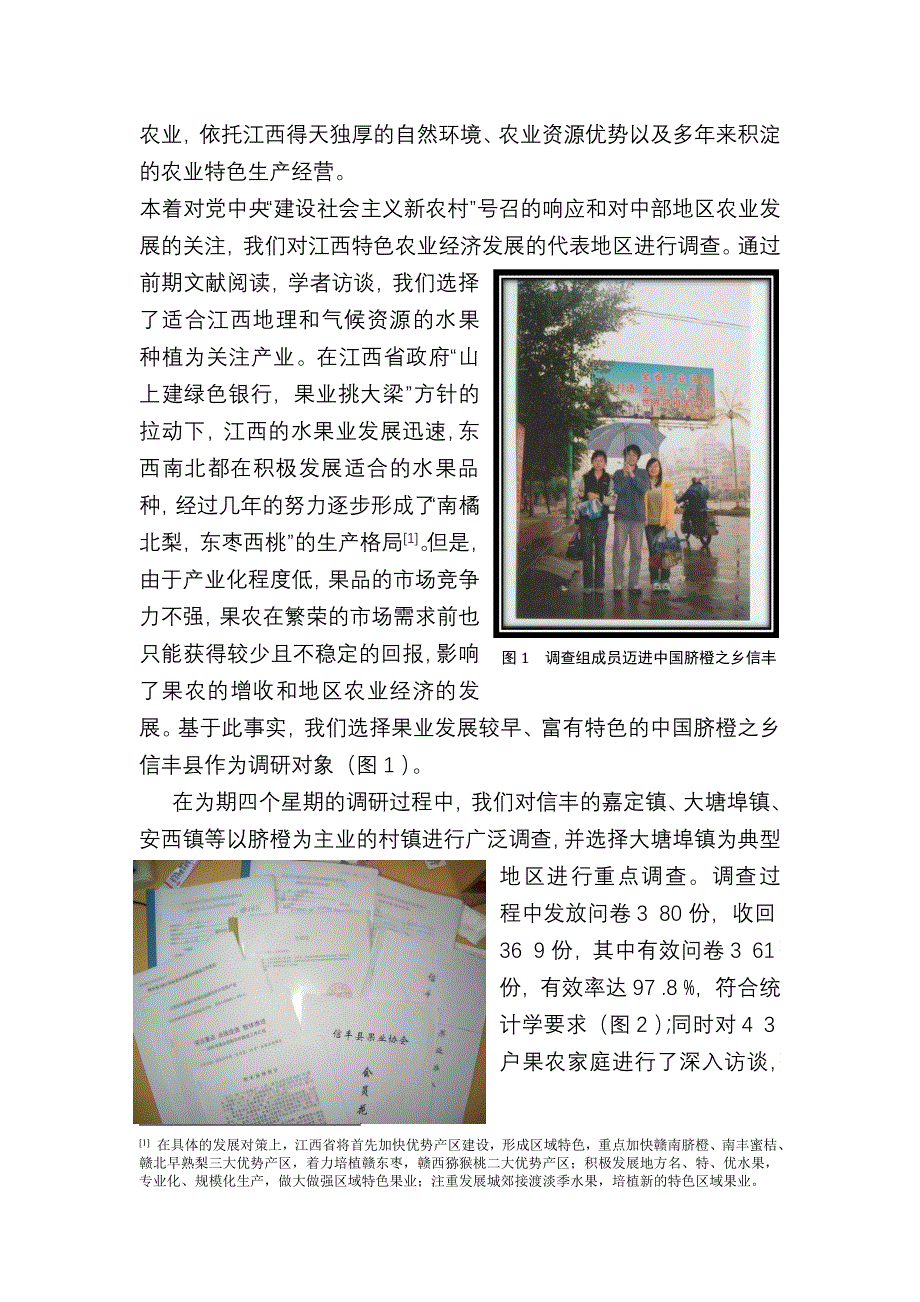 农业，依托江西得天独厚的自然环境、农业资源优势以及多年来积淀
的农业特色生产经营。
本着对党中央“建设社会主义新农村”号召的响应和对中部地区农业发
展的关注，我们对江西特色农业经济发展的代表地区进行调查。通过
前期文献阅读，学者访谈，我们选择
了适合江西地理和气候资源的水果
种植为关注产业。在江西省政府“山
上建绿色银行，果业挑大梁”方针的
拉动下，江西的水果业发展迅速，东
西南北都在积极发展适合的水果品
种，经过几年的努力逐步形成了“南橘
北梨，东枣西桃”的生产格局[1]。但是，
由于产业化程度低，果品的市场竞争
力不强，果农在繁荣的市场需求前也
只能获得较少且不稳定的回报，影响
了果农的增收和地区农业经济的发
图 1 调查组成员迈进中国脐橙之乡信丰
展。基于此事实，我们选择果业发展较早、富有特色的中国脐橙之乡
信丰县作为调研对象（图1）。
在为期四个星期的调研过程中，我们对信丰的嘉定镇、大塘埠镇、
安西镇等以脐橙为主业的村镇进行广泛调查，并选择大塘埠镇为典型
地区进行重点调查。调查过
程中发放问卷3 80份，收回
36 9份，其中有效问卷3 61
份，有效率达97.8%，符合统
计学要求（图2）；同时对4 3
户果农家庭进行了深入访谈，
信丰县果业协会
会员花
[1] 在具体的发展对策上，江西省将首先加快优势产区建设，形成区域特色，重点加快赣南脐橙、南丰蜜桔、
赣北早熟梨三大优势产区，着力培植赣东枣，赣西猕猴桃二大优势产区；积极发展地方名、特、优水果，
专业化、规模化生产，做大做强区域特色果业；注重发展城郊接渡淡季水果，培植新的特色区域果业。